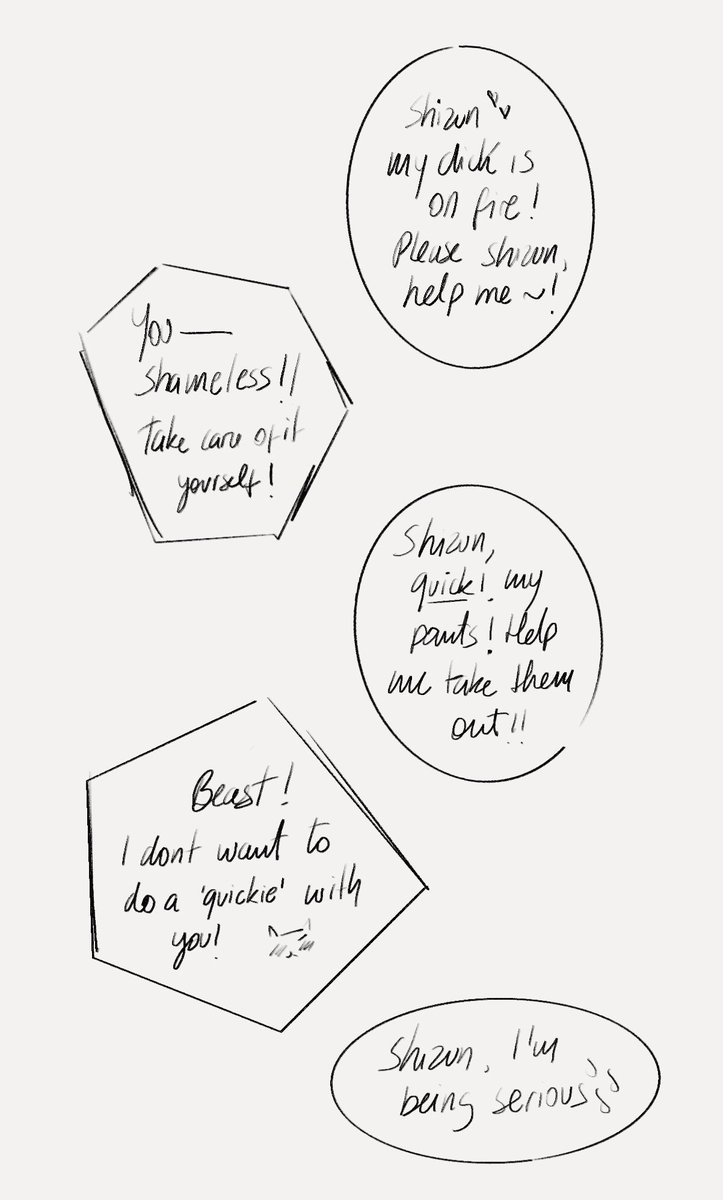 Shizun
my dick is
on fire!
Please shizun,
help me ~!
You —
shameless!!
take care of it
yourself!
Shizun,
quick! my
pants! Help
me take them
out!!
Beast!
I dont want to
do a 'quickie' with
you!
Shizun, I'm
being serious